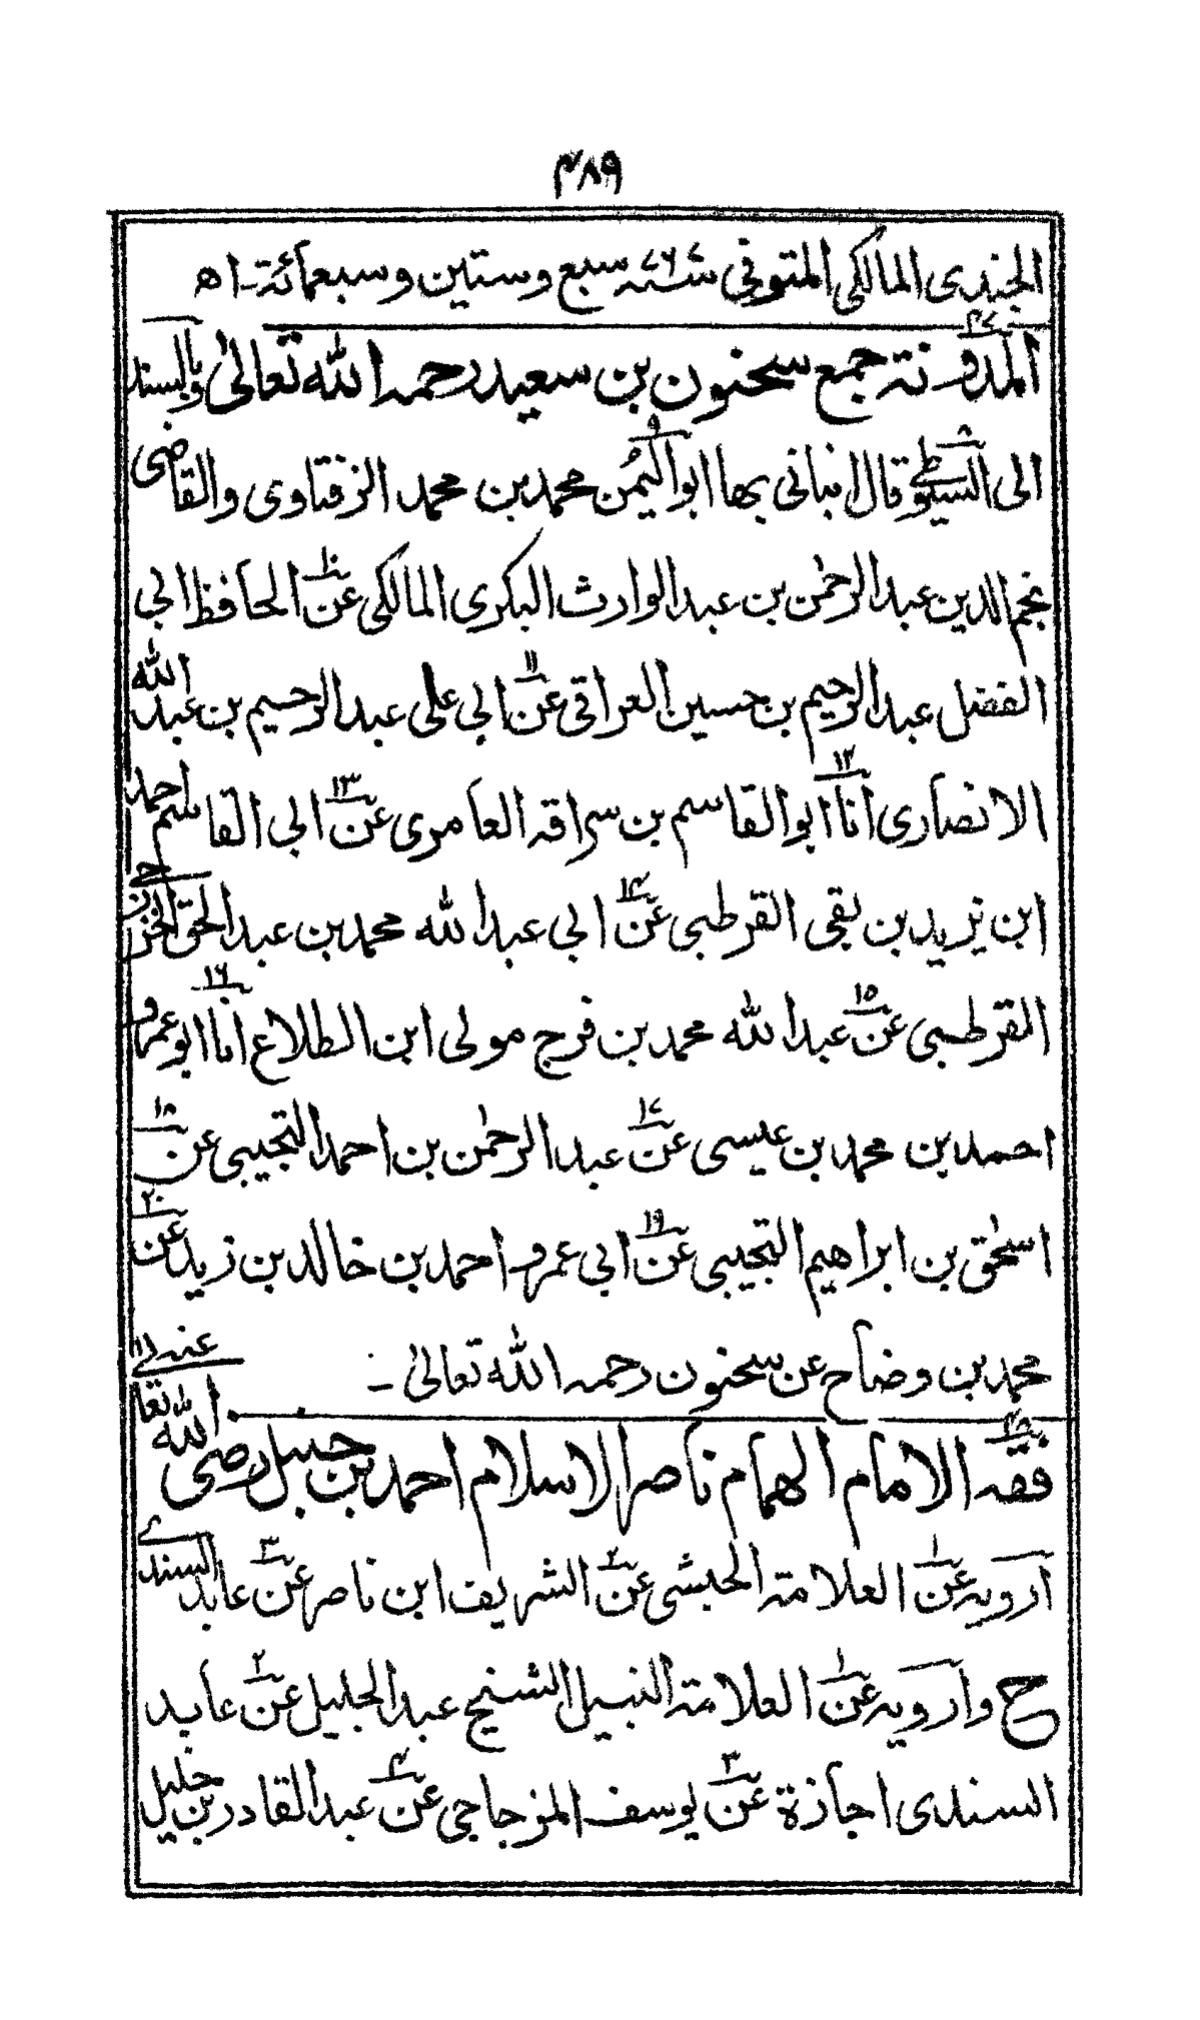 ۴۸۹
الجندى المالكى المتوفى ۷۶۷ سنه سبع وستين وسبعمائة ـ اه
۴۷
المدونة جمع سحنون بن سعيد رحمه الله تعالىٰ وبالسند
الى السيوطى ۸ قال انبانى بها ابو اليُمن ۹ محمد بن محمد الزفتاوى والقاضى
نجم الدين عبد الرحمٰن بن عبد الوارث البكرى المالكى عن ۱۰ الحافظ ابى
الفضل عبد الرحيم بن حسين العراقى عن ۱۱ ابى على عبد الرحيم بن عبد الله
الانصارى انا ۱۲ ابو القاسم بن سراقه العامرى عن ۱۳ ابى القاسم احمد
ابن يزيد بن بقى القرطبى عن ۱۴ ابى عبد الله محمد بن عبد الحق الخزرجى
القرطبى عن ۱۵ عبد الله محمد بن فرج مولى ابن الطلاع انا ۱۶ ابو عمرو
احمد بن محمد بن عيسى عن ۱۷ عبد الرحمٰن بن احمد التجيبى عن ۱۸
اسحٰق بن ابراهيم التجيبى عن ۱۹ ابى عمرو احمد بن خالد بن زيد عن ۲۰
محمد بن وضاح عن سحنون رحمه الله تعالىٰ ـ
۴۸
فقه الامام الهمام ناصر الاسلام احمد بن حنبل رضى الله تعالى عنه
ارويه عن ۱ العلامة الحبشى عن ۲ الشريف ابن ناصر عن ۳ عابد السندى ۴
ح وارويه عن ۱ العلامة النبيل الشيخ عبد الجليل عن ۲ عابد
السندى اجازة عن ۳ يوسف المزجاجى عن ۴ عبد القادر بن خليل